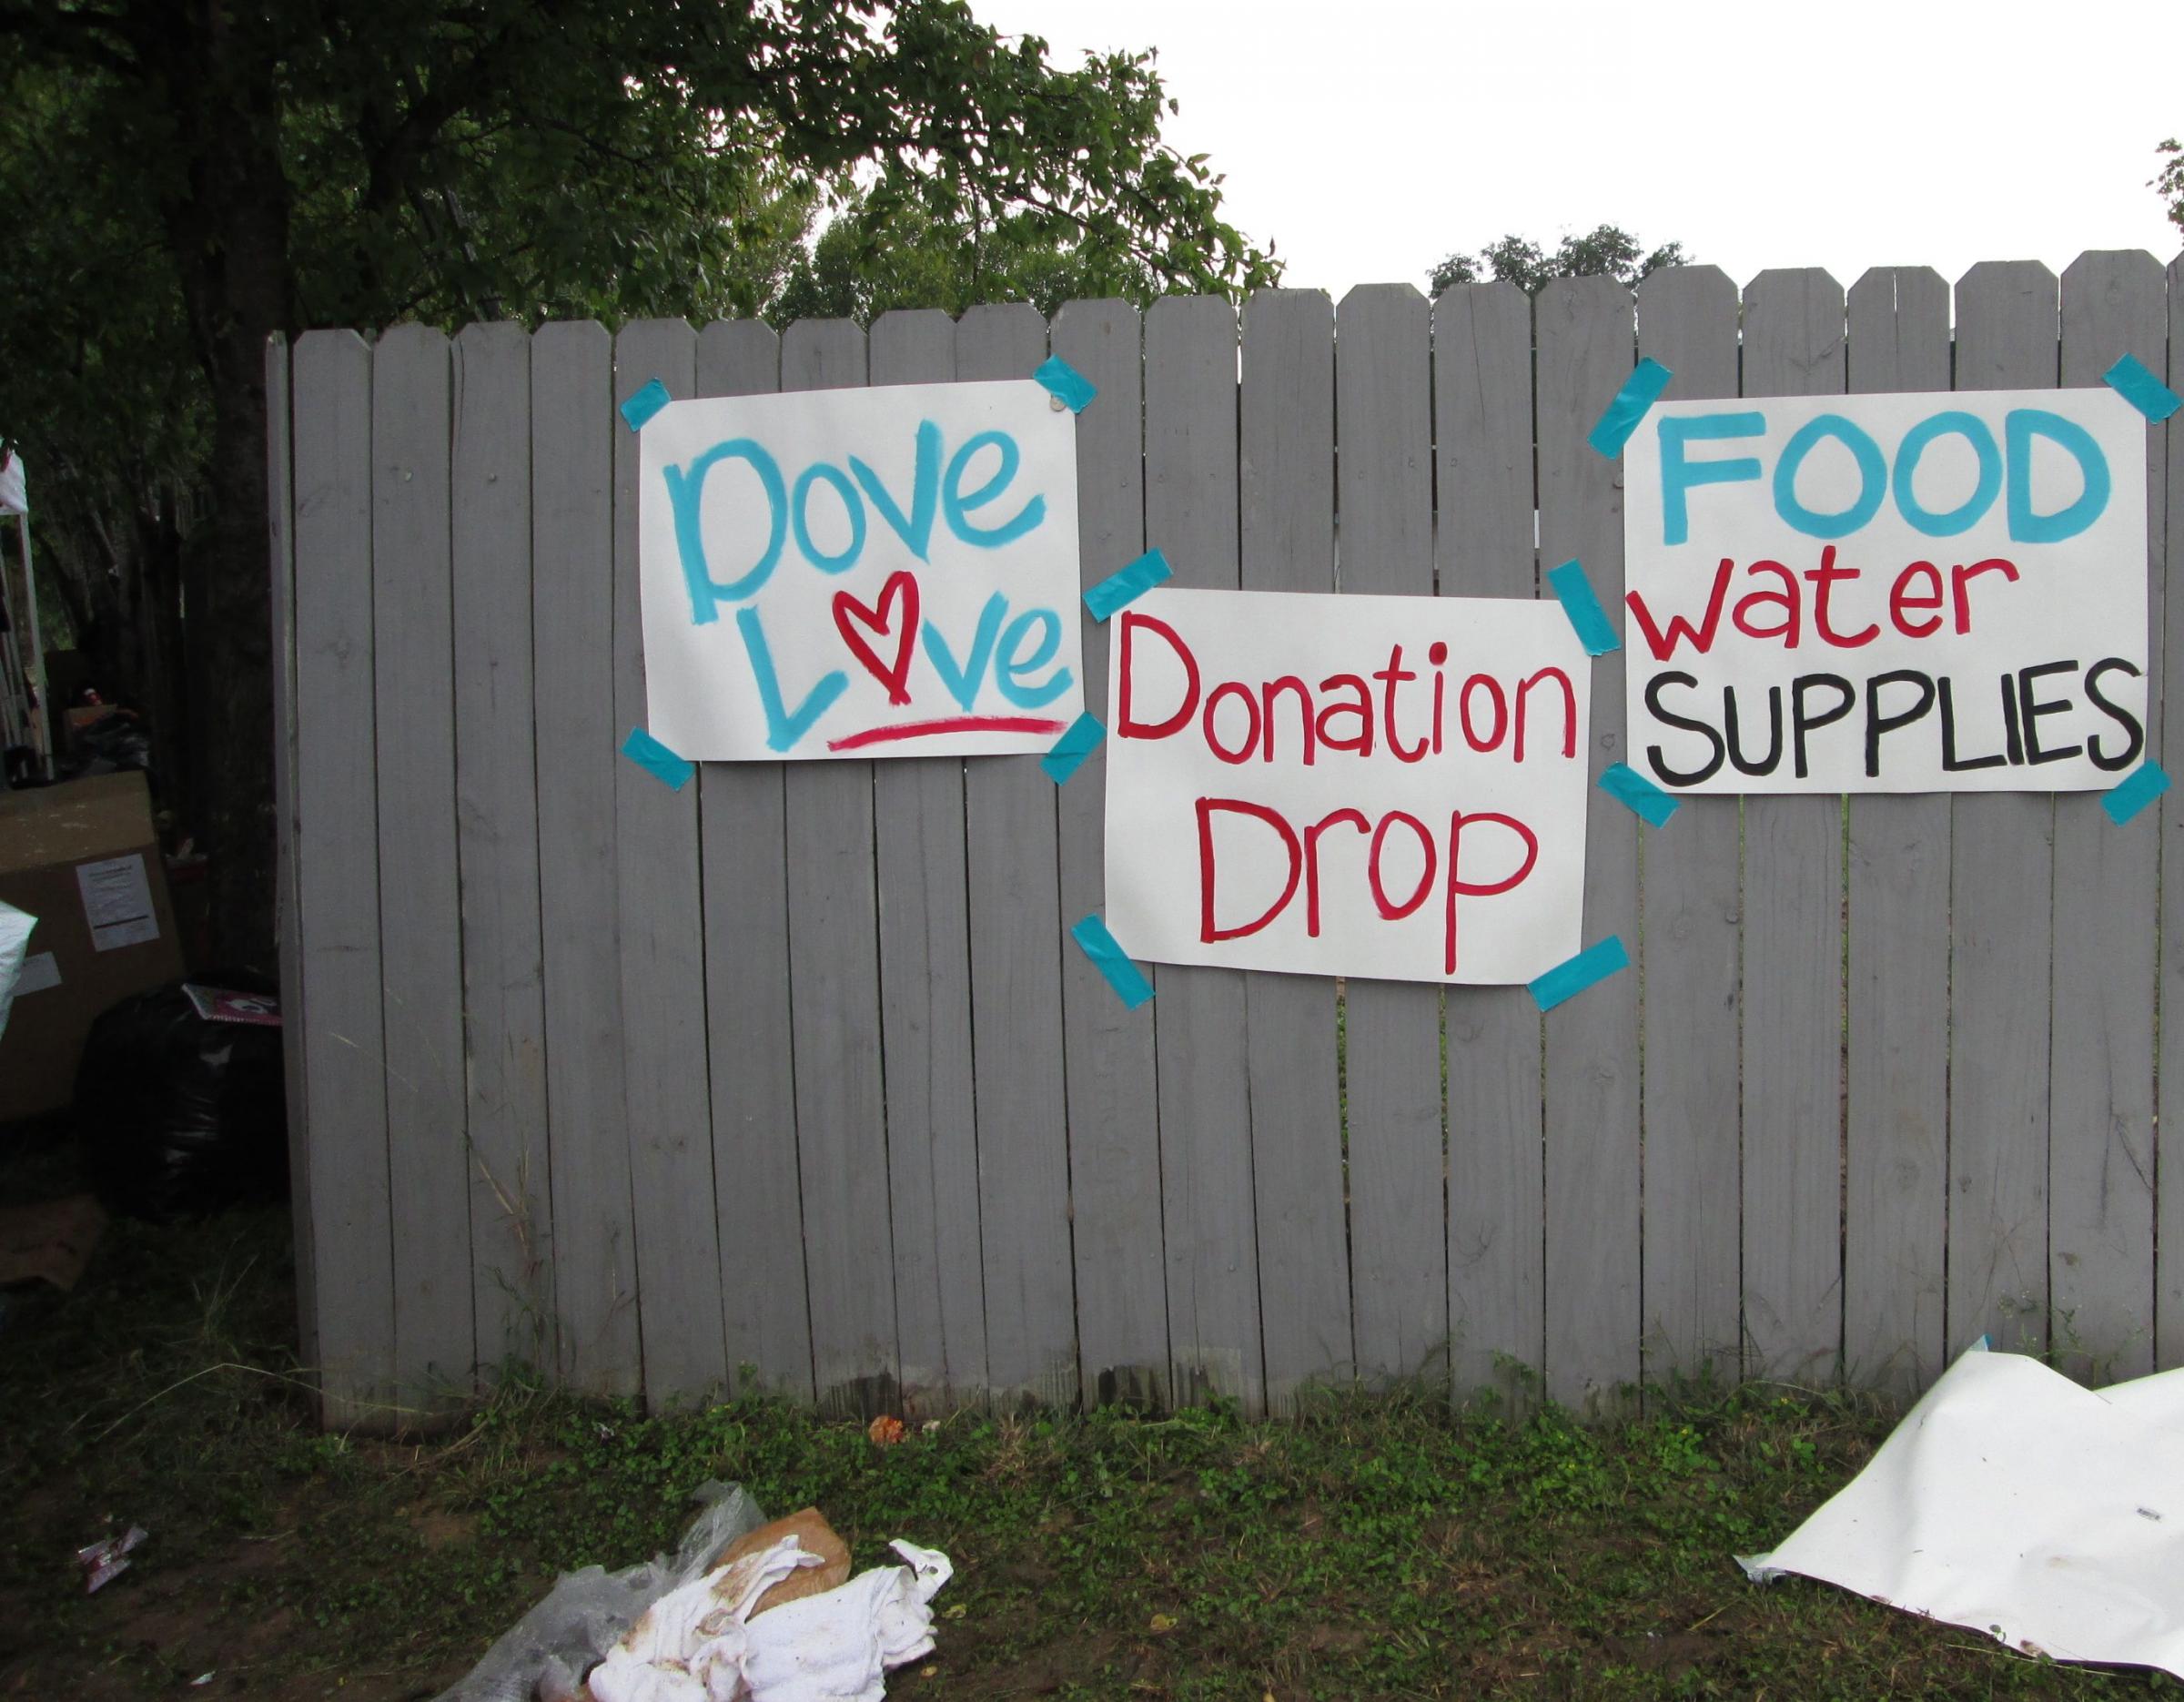 Dove
L♡ve
Donation
Drop
FOOD
water
SUPPLIES